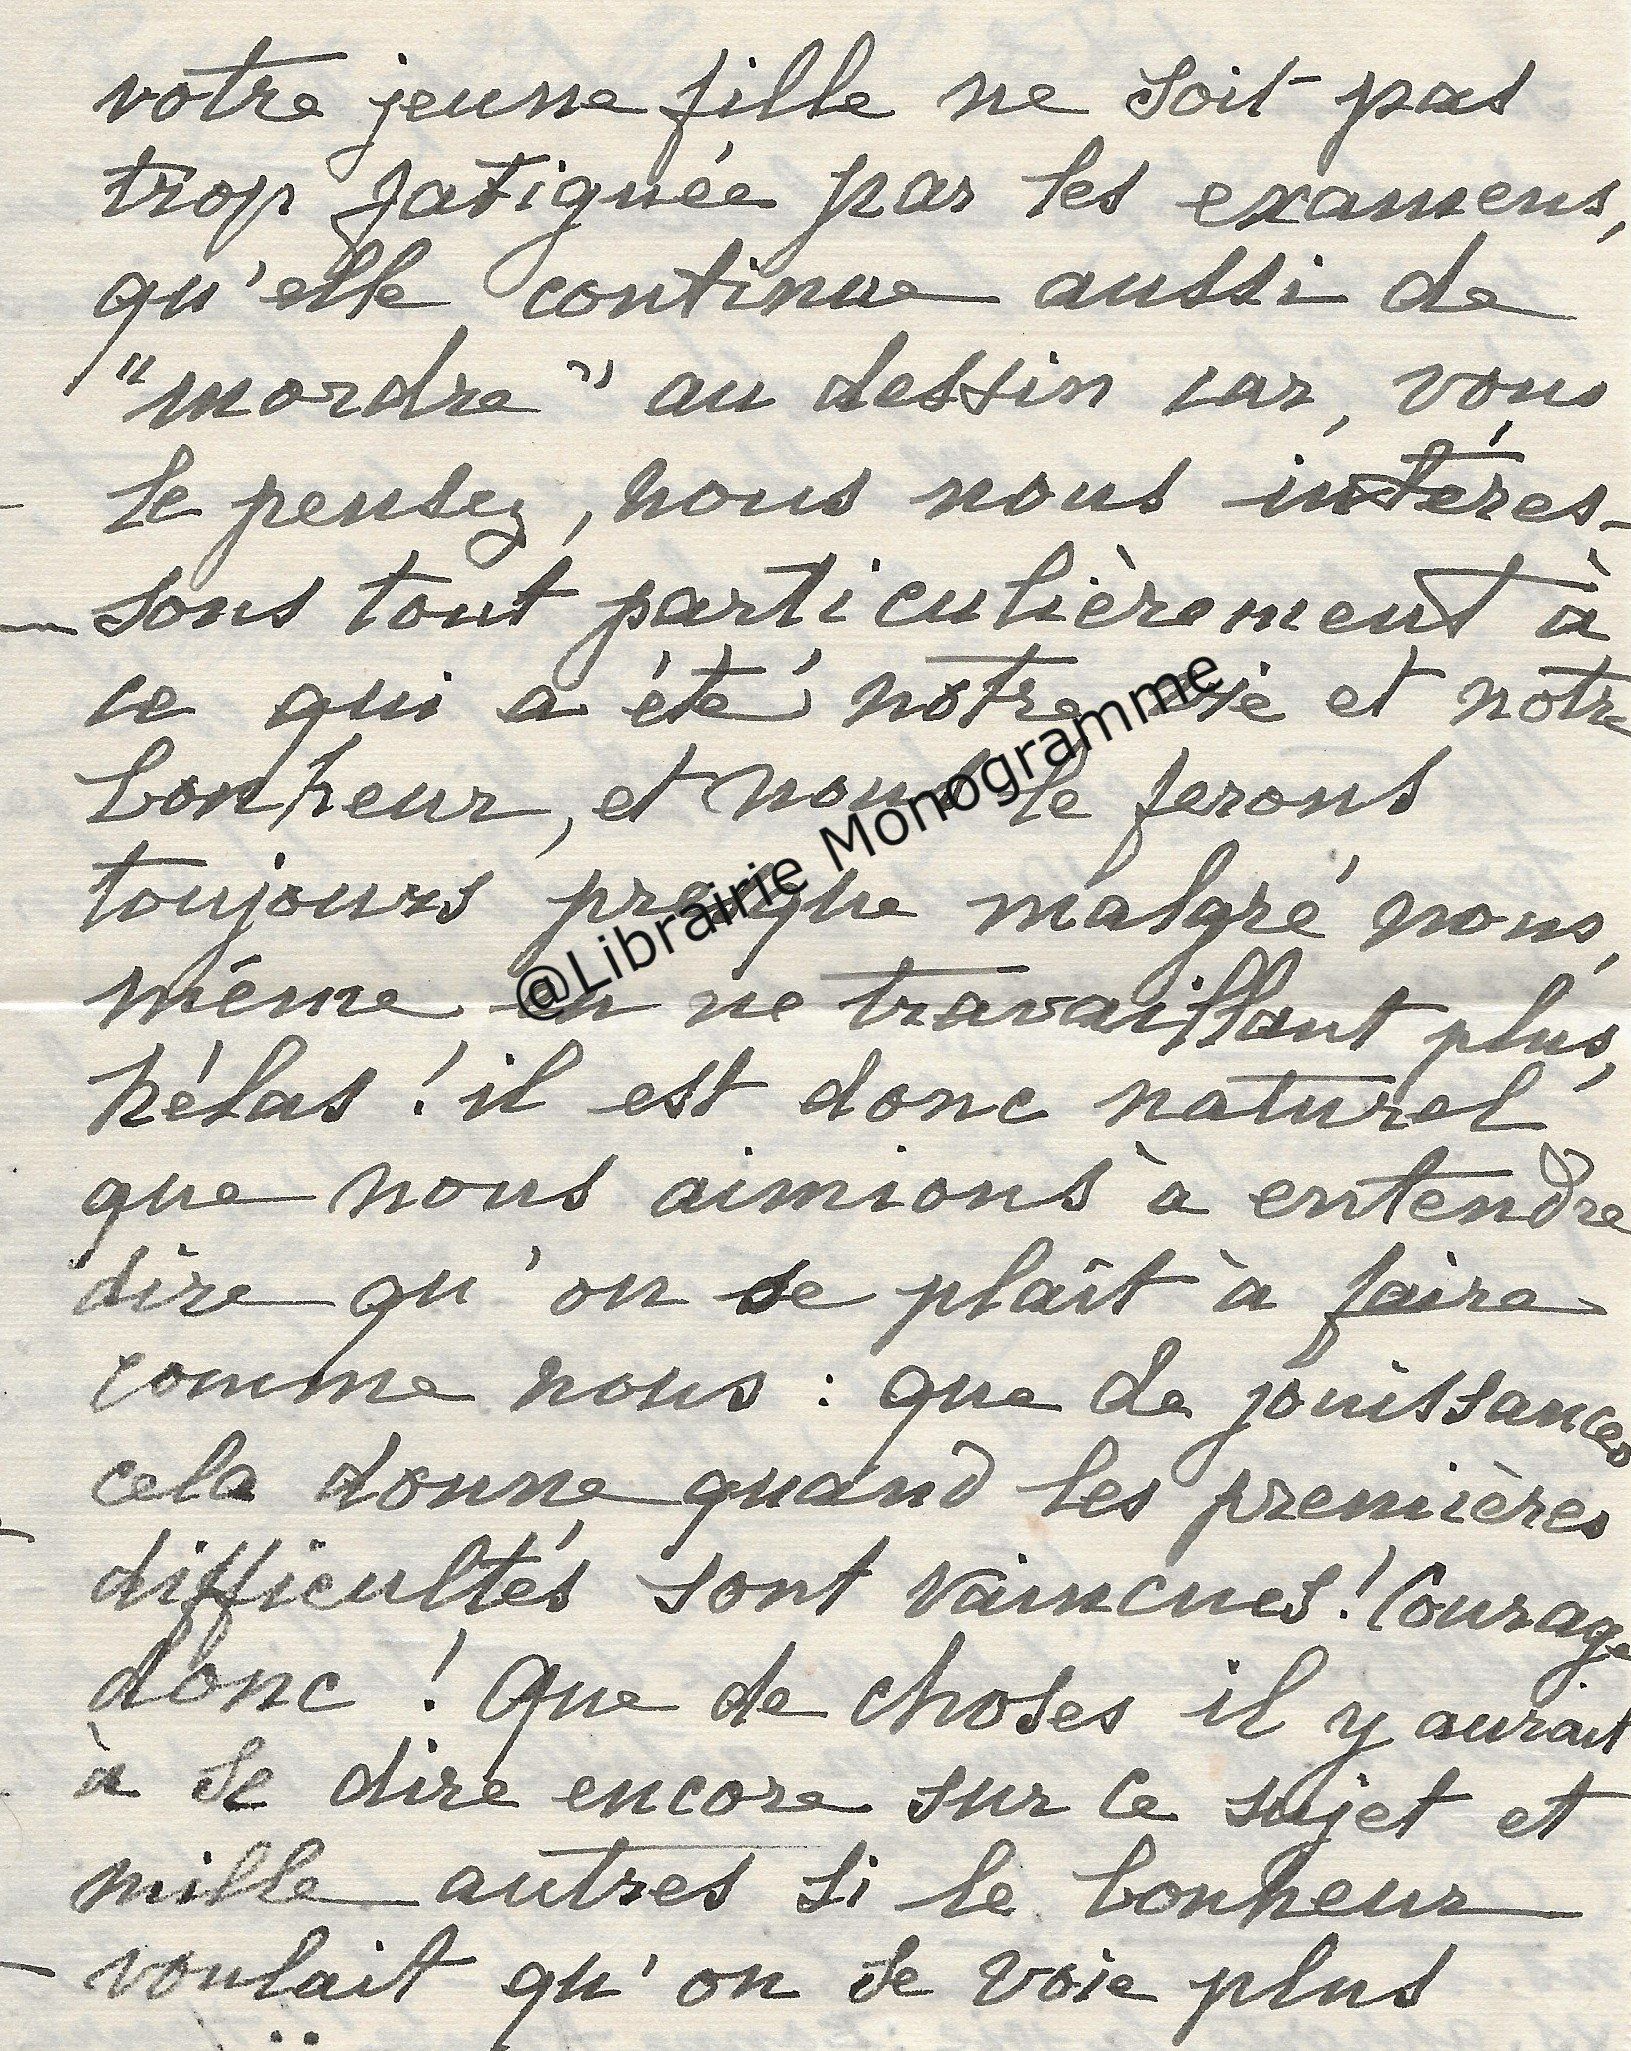 votre jeune fille ne soit pas
trop fatiguée par les examens,
qu'elle continue aussi de
"mordre" au dessin car, vous
le pensez, nous nous intéres-
sons tout particulièrement à
ce qui a été notre vie et notre
bonheur, et nous le ferons
toujours presque malgré nous,
même en ne travaillant plus,
hélas ! il est donc naturel
que nous aimions à entendre
dire qu'on se plaît à faire
comme nous : que de jouissances
cela donne quand les premières
difficultés sont vaincues ! Courage
donc ! Que de choses il y aurait
à se dire encore sur ce sujet et
mille autres si le bonheur
voulait qu'on se voie plus
@Librairie Monogramme